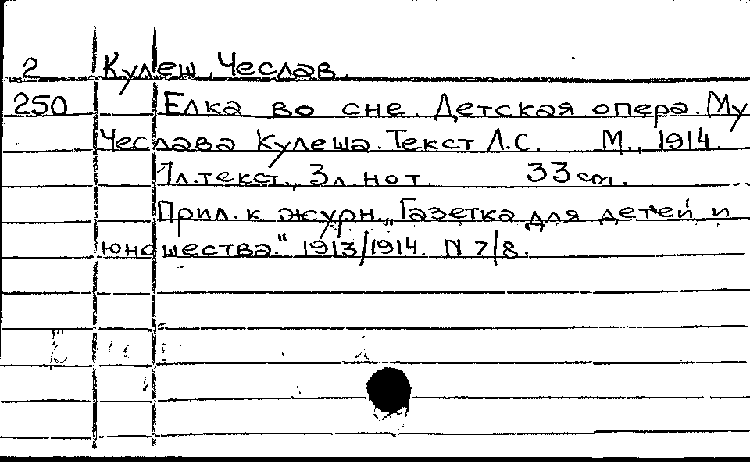 2 Кулеш, Чеслав.
250 Елка во сне. Детская опера. Му
Чеслава Кулеша. Текст Л.С. М., 1914.
1л.текст., 3л.нот 33 cm.
Прил. к журн. „Газетка для детей и
юношества." 1913/1914. N 7/8.